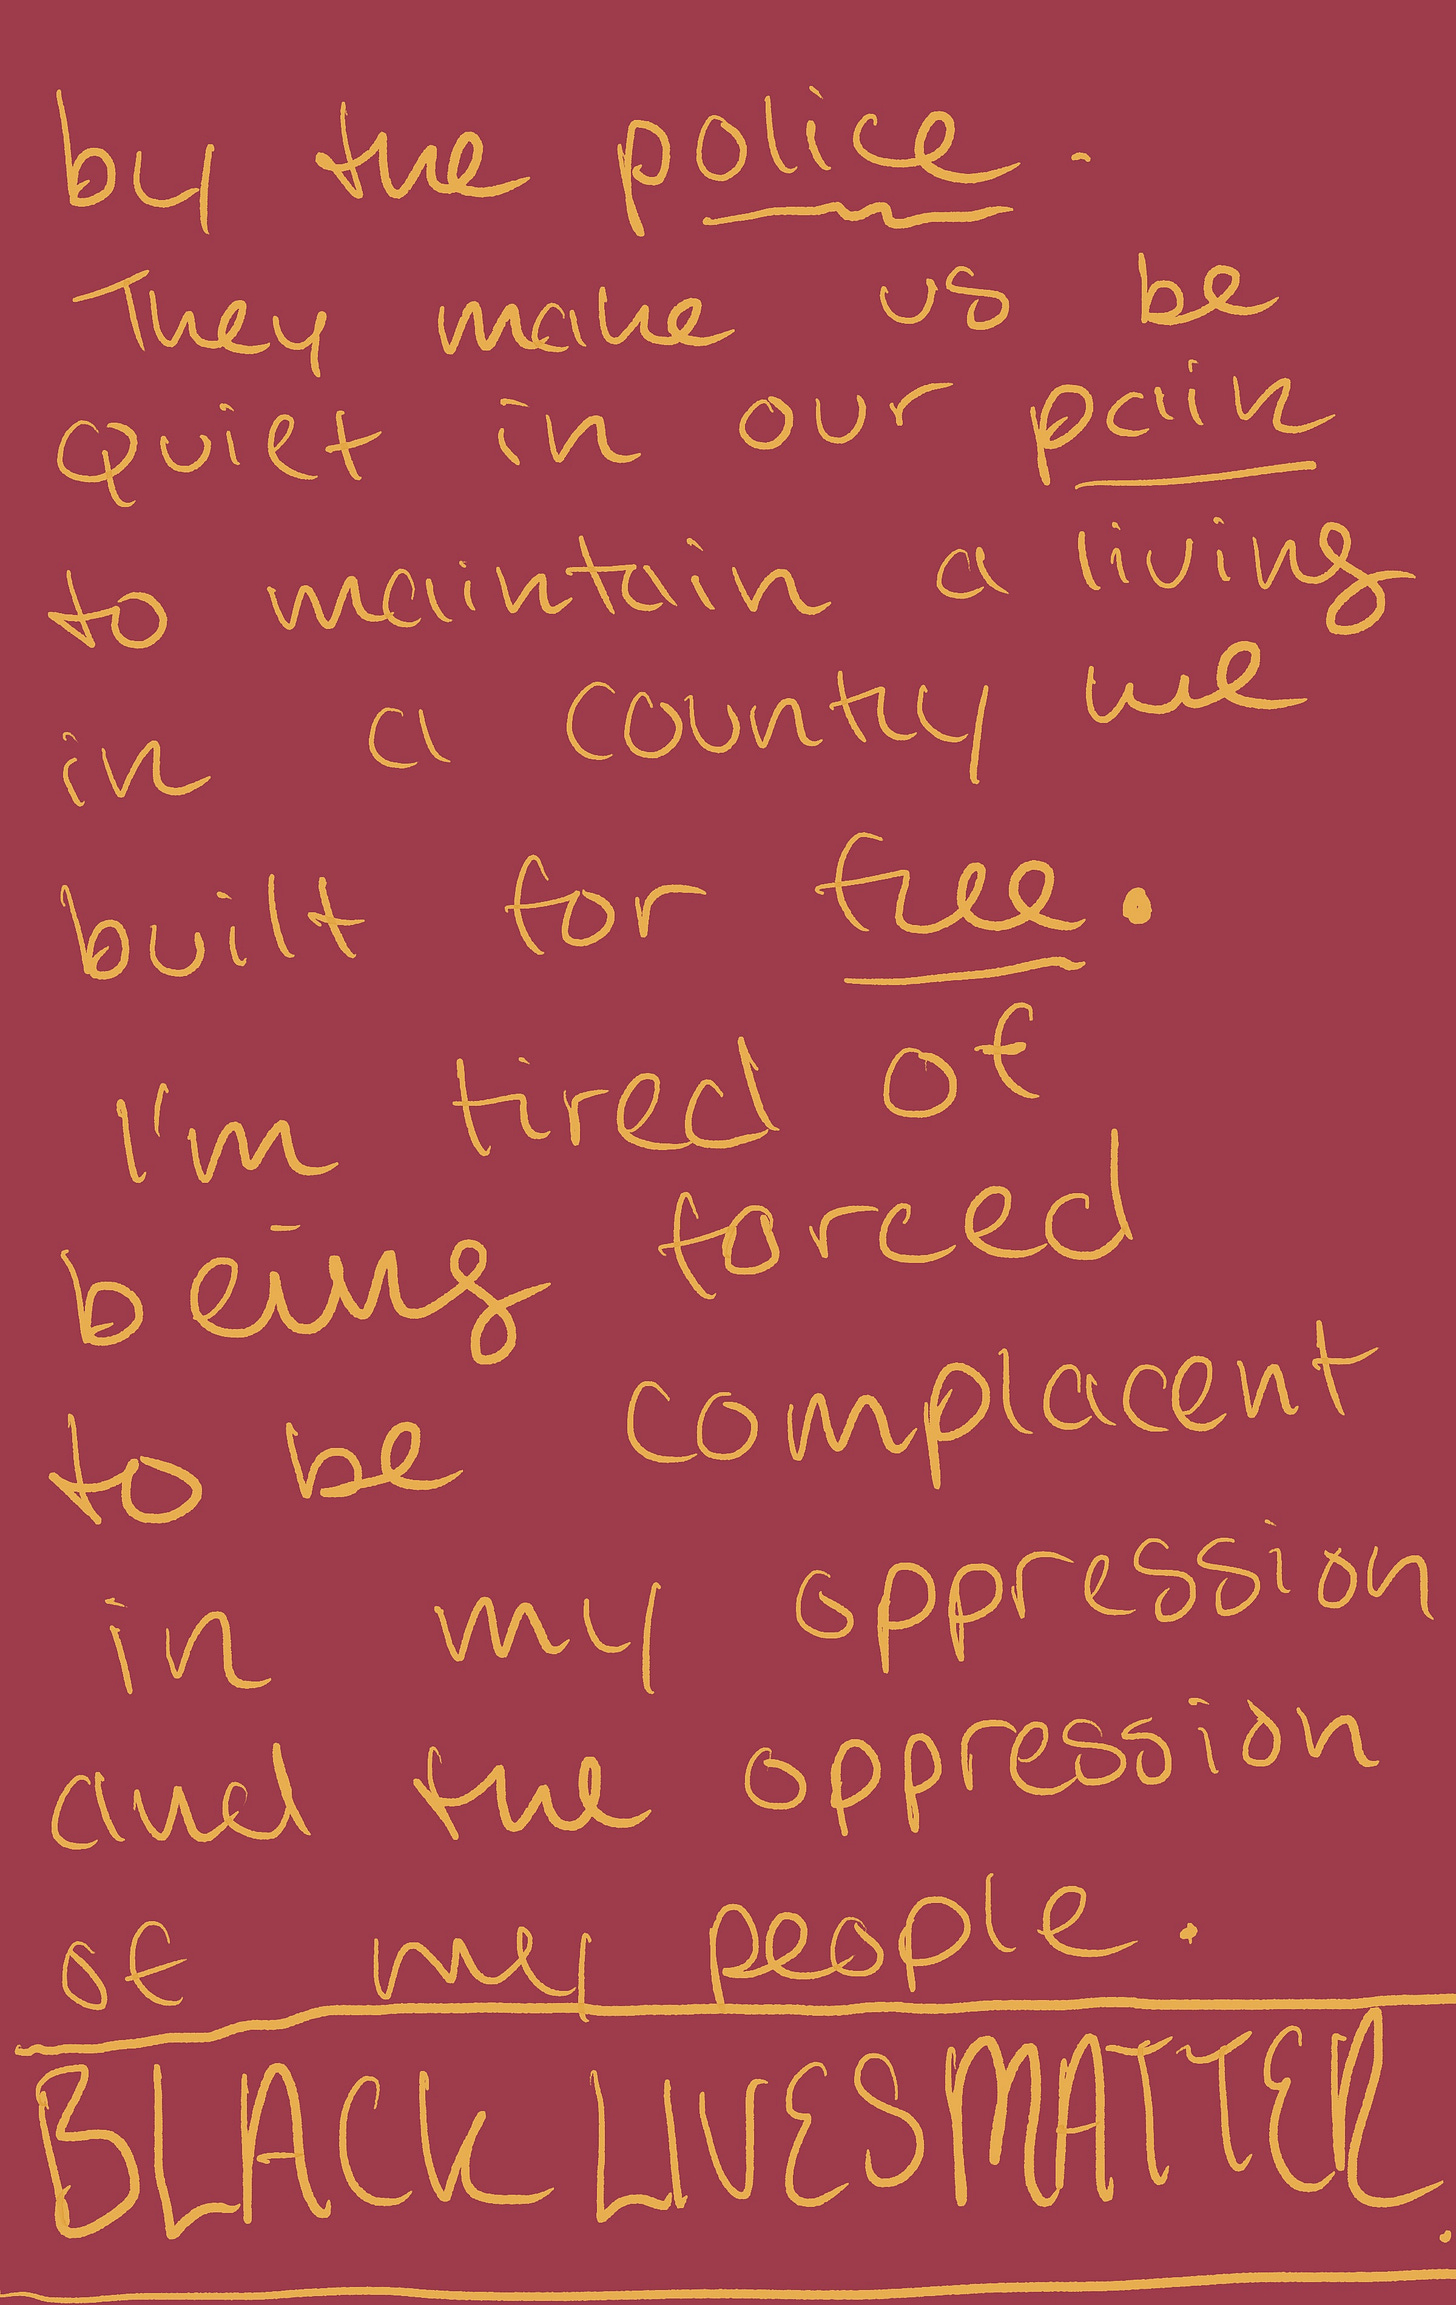 by the police.
They make us be
quiet in our pain
to maintain a living
in a country we
built for free.
I'm tired of
being forced
to be complacent
in my oppression
and the oppression
of my people.
BLACK LIVES MATTER.